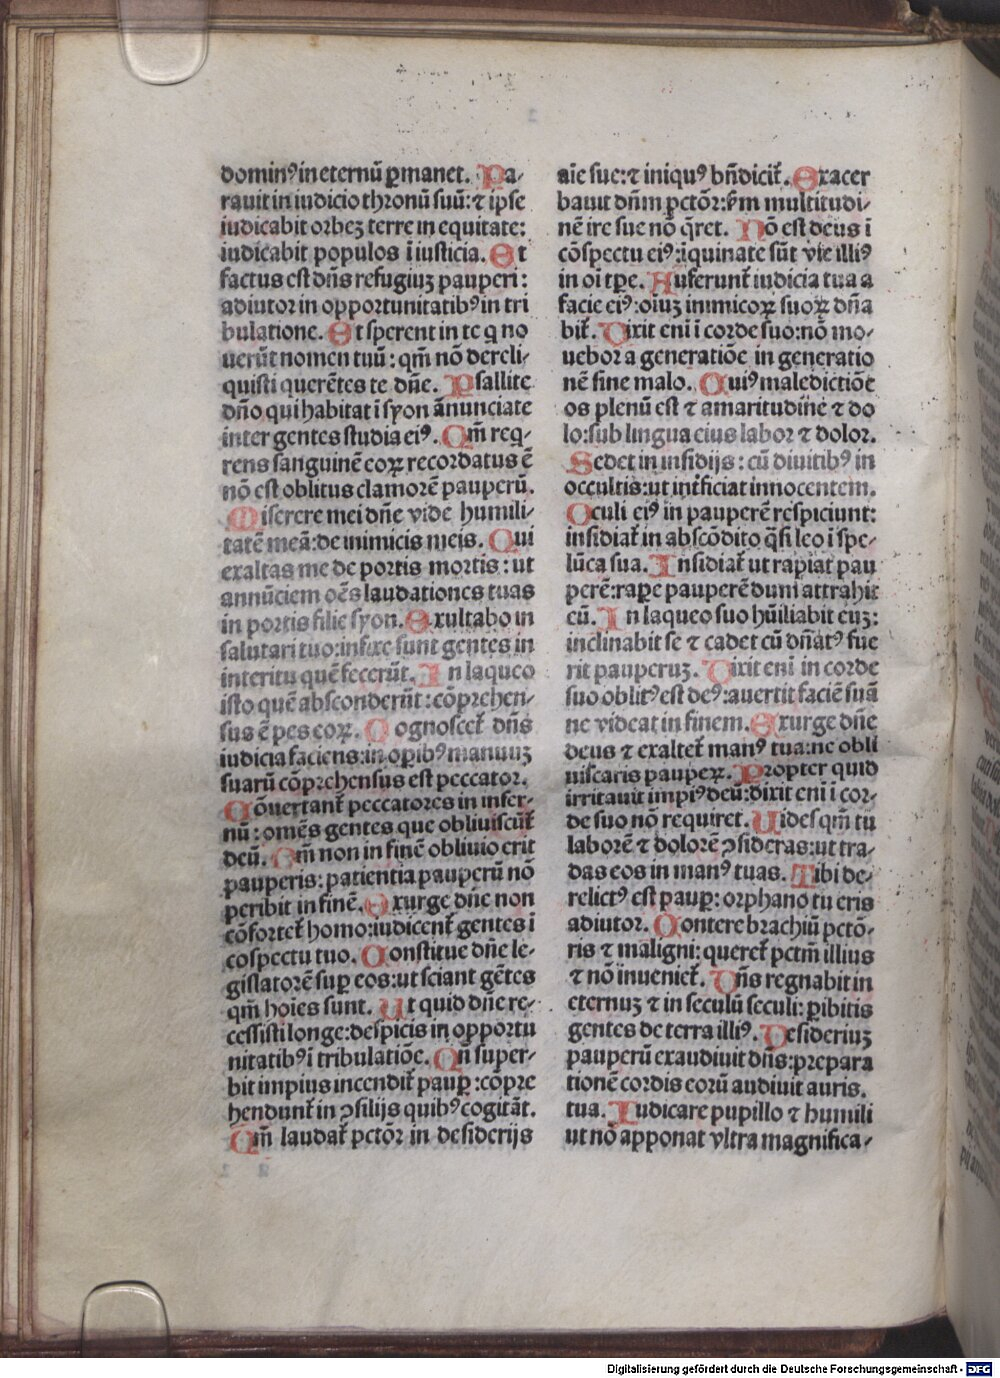 dominꝰ in eternū ꝑmanet. Pa-
rauit in iudicio thronū suū: ⁊ ipse
iudicabit orbeꝫ terre in equitate:
iudicabit populos ī iusticia. Et
factus est dn̄s refugiuꝫ pauperi:
adiutor in opportunitatibꝰ in tri
bulatione. Et sperent in te q̄ no
uerūt nomen tuū: qm̄ nō dereli-
quisti querētes te dn̄e. Psallite
dn̄o qui habitat ī syon ānunciate
inter gentes studia eiꝰ. Qm̄ req̄-
rens sanguinē eoꝝ recordatus ē
nō est oblitus clamorē pauperū.
Miserere mei dn̄e vide humili-
tatē meā: de inimicis meis. Qui
exaltas me de portis mortis: ut
annūciem oēs laudationes tuas
in portis filie syon. Exultabo in
salutari tuo: infixe sunt gentes in
interitu quē fecerūt. In laqueo
isto quē absconderūt: cōprehen-
sus ē pes eoꝝ. Cognoscet̄ dn̄s
iudicia faciens: in oꝑibꝰ manuuꝫ
suarū cōprehensus est peccator.
Cōuertant̄ peccatores in infer-
nū: omēs gentes que obliuiscūt̄
deū. Qm̄ non in finē obliuio erit
pauperis: patientia pauperū nō
peribit in finē. Exurge dn̄e non
cōfortet̄ homo: iudicent̄ gentes ī
cōspectu tuo. Constitue dn̄e le-
gislatorē suꝑ eos: ut sciant gētes
qm̄ hoīes sunt. Ut quid dn̄e re-
cessisti longe: despicis in opportu
nitatibꝰ ī tribulatiōe. Dū super-
bit impius incendit̄ pauꝑ: cōpre
hendunt̄ in ꝯsilijs quibꝰ cogitāt.
Qm̄ laudat̄ pctōꝛ in desiderijs
aīe sue: ⁊ iniquꝰ bn̄dicit̄. Exacer
bauit dn̄m pctōꝛ: ẜm multitudi-
nē ire sue nō q̄ret. Nō est deus ī
cōspectu eiꝰ: īquinate sūt vie illiꝰ
in oī tꝑe. Auferunt̄ iudicia tua a
facie eiꝰ: oīuꝫ inimicoꝝ suoꝝ dn̄a
bit̄. Dixit enī ī corde suo: nō mo-
uebor a generatiōe in generatio
nē sine malo. Cuiꝰ maledictiōe
os plenū est ⁊ amaritudine ⁊ do
lo: sub lingua eius labor ⁊ dolor.
Sedet in insidijs: cū diuitibꝰ in
occultis: ut int̄ficiat innocentem.
Oculi eiꝰ in pauperē respiciunt:
insidiat̄ in abscōdito q̄si leo ī spe-
lūca sua. Insidiat̄ ut rapiat pau
perē: raꝑe pauperē dum attrahit
eū. In laqueo suo hūiliabit euꝫ:
inclinabit se ⁊ cadet cū dn̄atꝰ fue
rit pauperuꝫ. Dixit enī in corde
suo oblitꝰ est deꝰ: auertit faciē suā
ne videat in finem. Exurge dn̄e
deus ⁊ exaltet̄ manꝰ tua: ne obli
uiscaris paupeꝝ. Propter quid
irritauit impiꝰ deū: dixit enī ī cor-
de suo nō requiret. Uides qm̄ tu
laborē ⁊ dolorē ꝯsideras: ut tra-
das eos in manꝰ tuas. Tibi de-
relictꝰ est pauꝑ: orphano tu eris
adiutor. Contere brachiū pctō-
ris ⁊ maligni: queret̄ pctm̄ illius
⁊ nō inueniet̄. Dn̄s regnabit in
eternuꝫ ⁊ in seculū seculi: ꝑibitis
gentes de terra illiꝰ. Desideriuꝫ
pauperū exaudiuit dn̄s: prepara
tionē cordis eorū audiuit auris.
tua. Iudicare pupillo ⁊ humili
ut nō apponat vltra magnifica-
Digitalisierung gefördert durch die Deutsche Forschungsgemeinschaft - DFG